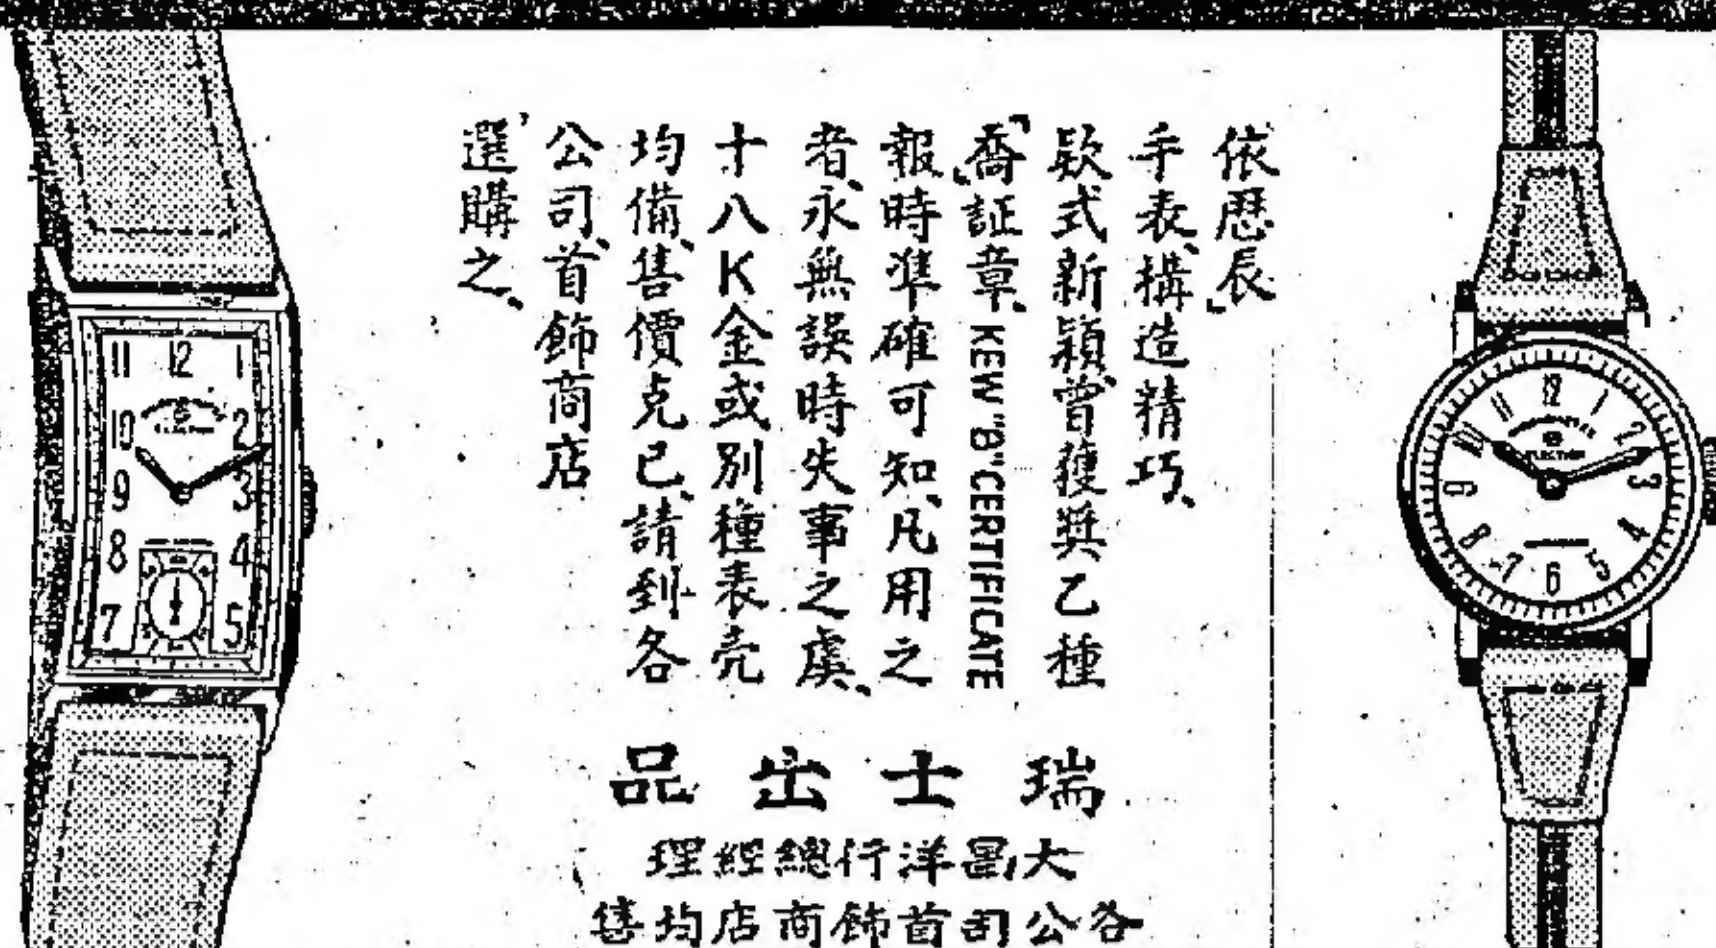 依歷辰
手表、構造精巧、
款式新穎、曾獲奬乙種
「喬」証章、KEW "B" CERTIFICATE
報時準確可知、凡用之
者、永無誤時失事之虞、
十八K金或別種表壳
均備、售價克己、請到各
公司、首飾商店
選購之、
瑞士出品
大昌洋行總經理
各公司首飾商店均售
11 12 1
10 2
9 3
8 4
7 5
12
11
10 2
9 3
8 4
7 6 5
ELECTION